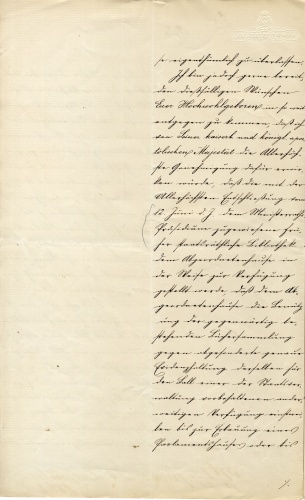 so eigenthümlich zu überlassen.
Ich bin jedoch gerne bereit,
den dießfälligen Wünschen
Euer Hochwohlgeboren in so weit
entgegen zu kommen, daß ich
von Seiner kaiserl. und königl. apo¬
stolischen Majestät die Allerhöch¬
ste Genehmigung dafür erwir¬
ken würde, daß die mit der
Allerhöchsten Entschließung vom
12 Juni d J. dem Ministerraths
Präsidium zugewiesene frü¬
her staatsräthliche Bibliothek
dem Abgeordnetenhause in
der Weise zur Verfügung
gestellt werde daß dem Ab¬
geordnetenhause die Benütz¬
ung der gegenwärtig be¬
stehenden Büchersammlung
gegen abgesonderte genaue
Evidenzhaltung derselben für
den Fall einer der Staatsver¬
waltung vorbehaltenen ander¬
weitigen Verfügung einstwei¬
len bis zur Erbauung eines
Parlamentshauses oder bis